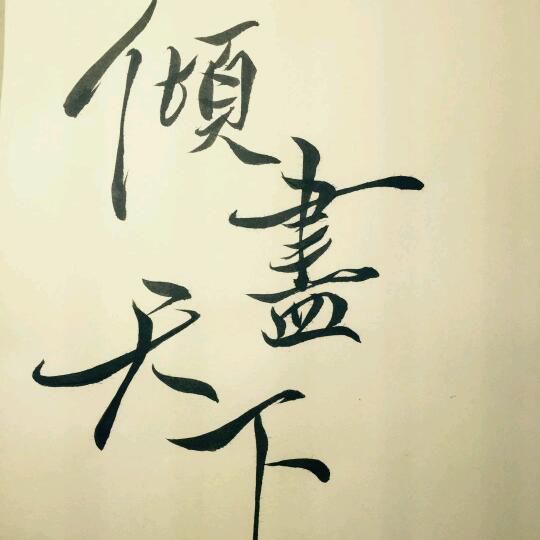 傾盡
天下